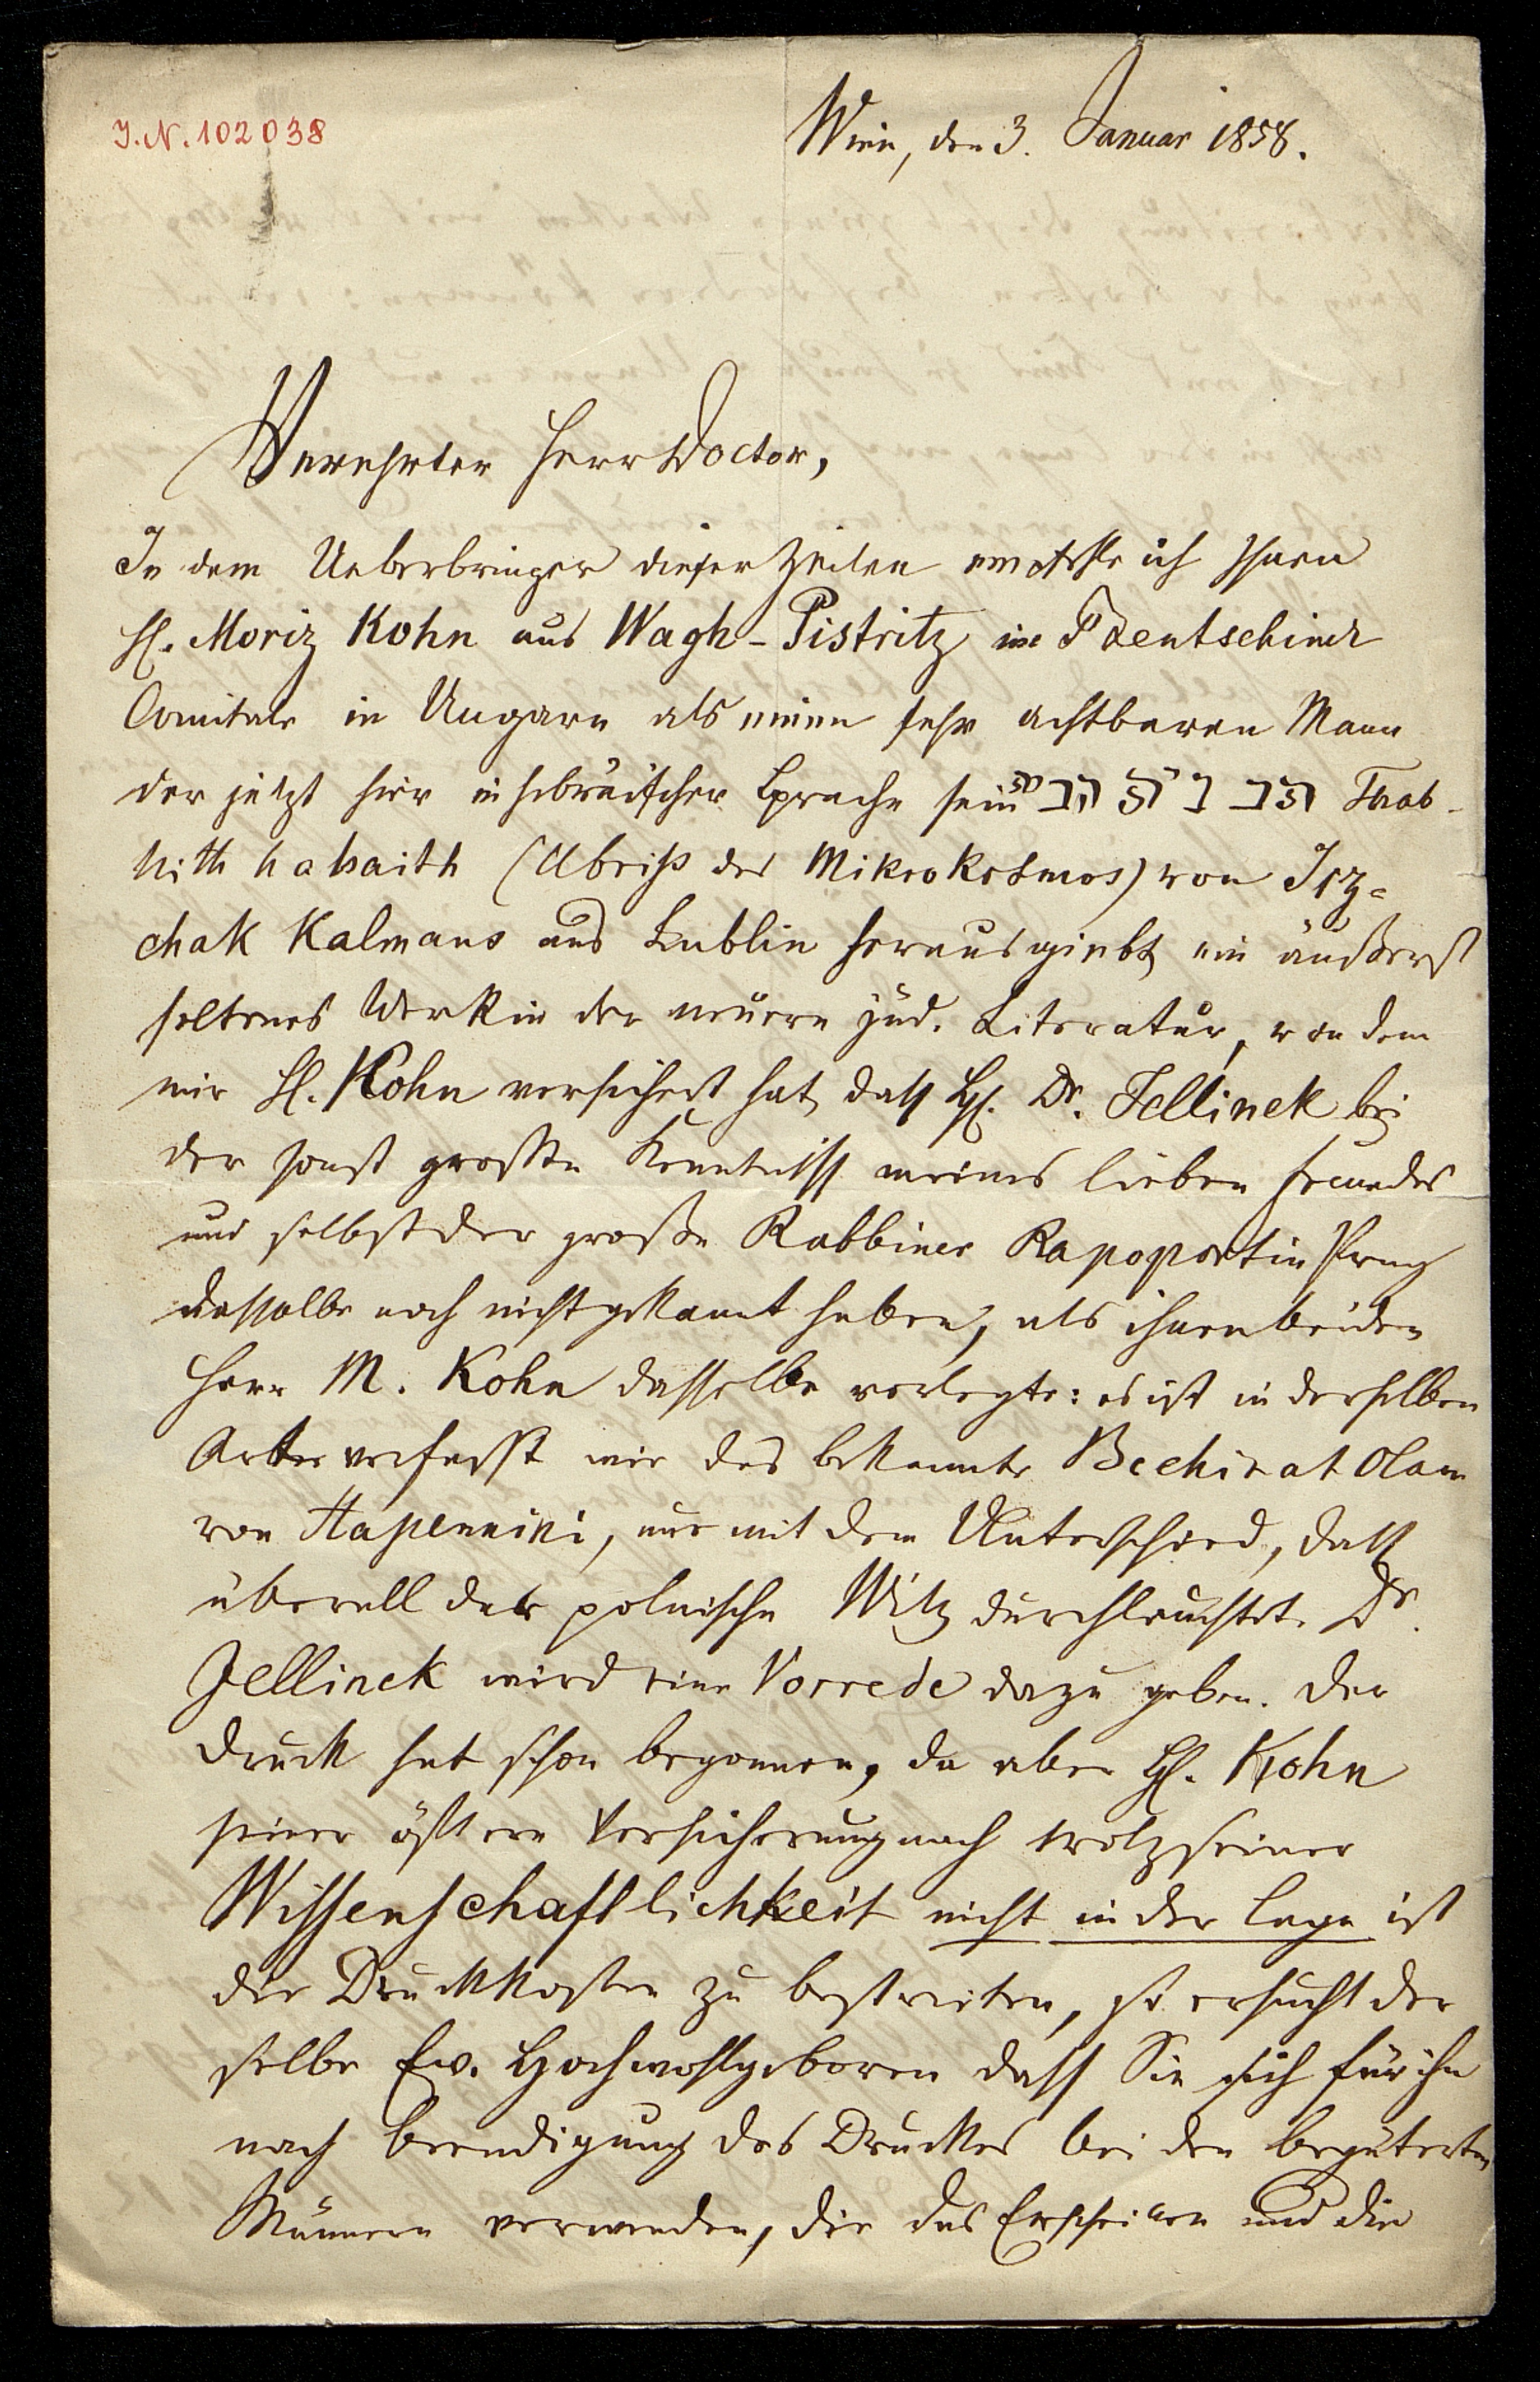 J.N. 102038
Wien, den 3. Januar 1858.
Verehrter Herr Doctor,
In dem Ueberbringer dieser Zeilen empfehle ich Ihnen
H. Moriz Kohn aus Wagh-Pistritz im Trentschiner
Comitate in Ungarn als einen sehr achtbaren Mann
der jetzt hier in hebräischer Sprache sein Thab-
nith habaith (Abriß des Mikrokosmos) von Iz-
chak Kalmans aus Lublin herausgiebt ein äußerst
seltenes Werk in der neuern jüd. Literatur, von dem
mir H. Kohn versichert hat daß H. Dr. Jellinek bei
der sonst großen Kenntniß meines lieben Freundes
und selbst der große Rabbiner Rapoport in Prag
dasselbe noch nicht gekannt haben, als ihnen beiden
Herr M. Kohn dasselbe vorlegte: es ist in derselben
Art verfasst wie das bekannte Bechinat Olam
von Hapennini, nur mit dem Unterschied, daß
überall der polnische Witz durchleuchtet. Dr.
Jellinek wird eine Vorrede dazu geben. Der
Druck hat schon begonnen, da aber H. Kohn
seiner öfteren Versicherung nach trotz seiner
Wissenschaftlichkeit nicht in der Lage ist
die Druckkosten zu bestreiten, so ersucht der
selbe Ew. Hochwohlgeboren dass Sie sich für ihn
nach Beendigung des Druckes bei den begüterten
Männern verwenden, die das Erscheinen und die